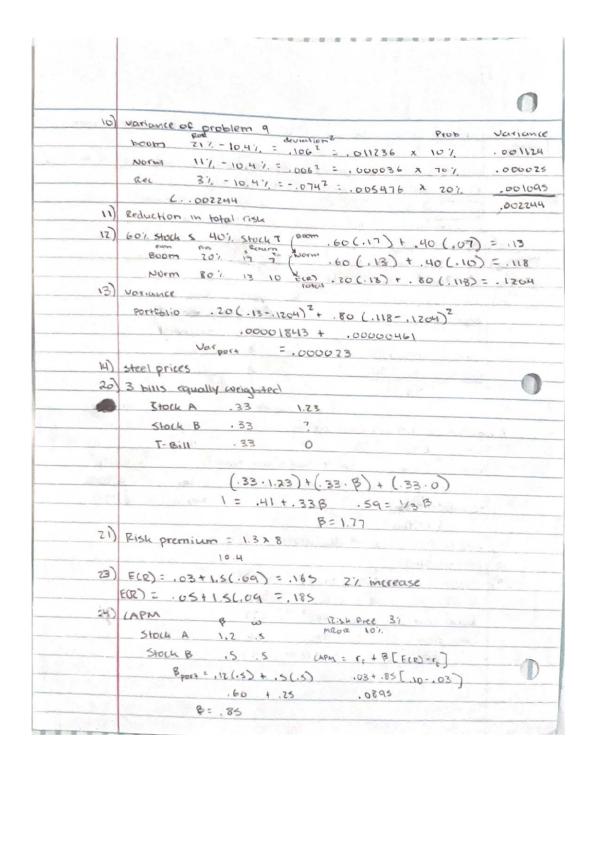 10) variance of problem 9
Ret deviation² Prob Variance
boom 21% - 10.4% = .106² = .011236 x 10% .001124
Norml 11% - 10.4% = .006² = .000036 x 70% .000025
Rec 3% - 10.4% = -.074² = .005476 x 20% .001095
.002244 .002244
11) Reduction in total risk
12) 60% Stock S 40% Stock T Boom .60(.17) + .40(.07) = .13
Return
Boom 20% 17 7 Norm .60(.13) + .40(.10) = .118
Norm 80% 13 10 E(R) total .20(.13) + .80(.118) = .1204
13) Variance
Portfolio .20(.13-.1204)² + .80(.118-.1204)²
.00001843 + .00000461
Var port = .000023
14) steel prices
20) 3 bills equally weighted
Stock A .33 1.23
Stock B .33 ?
T-Bill .33 0
(.33·1.23)+(.33·β)+(.33·0)
1 = .41 + .33β .59 = 1/3 β
β = 1.77
21) Risk premium = 1.3 x 8
10.4
23) E(R) = .03 + 1.5(.09) = .165 2% increase
E(R) = .05 + 1.5(.09 = .185
24) CAPM β w Risk Free 3%
Stock A 1.2 .5 10%
Stock B .5 .5 CAPM = rf + β[E(R)-rf]
βport = .12(.5) + .5(.5) .03 + .85[.10-.03]
.60 + .25 .0895
β = .85